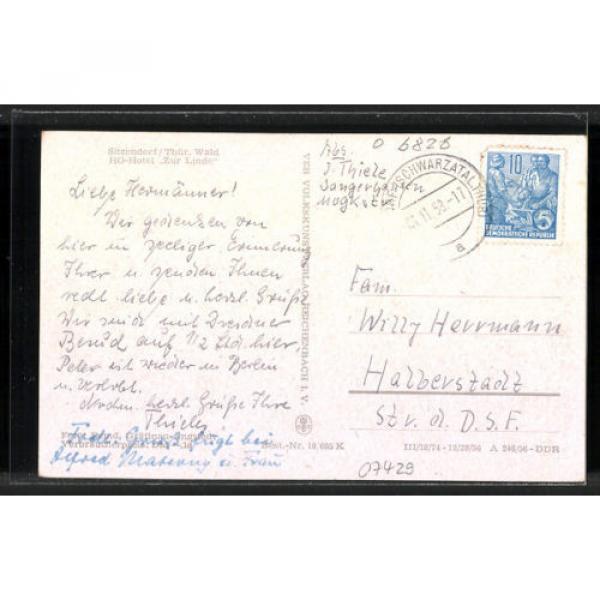 Sitzendorf/Thür. Wald
HO-Hotel „Zur Linde"
Liebe Hermänner!
Wir gedenken von
hier in seeliger Erinnerung
Ihrer u. senden Ihnen
recht liebe u. herzl. Grüße
Wir sind mit Dresdner
Besuch auf 1/2 Std. hier,
Peter ist wieder in Berlin
u. verlobt.
Nochm. herzl. Grüße Ihre
Thieles
Alfred u. Frau
Best.-Nr. 10 665 K
VEB VOLKSKUNSTVERLAG REICHENBACH I. V.
O 6826
Abs.
J. Thiele
Sangerhausen
SCHWARZATAL
11.58.-17
a
10
5
DEUTSCHE
DEMOKRATISCHE REPUBLIK
Fam.
Willy Herrmann
Halberstadt
Str. d. D.S.F.
A 246/56-DDR
07429